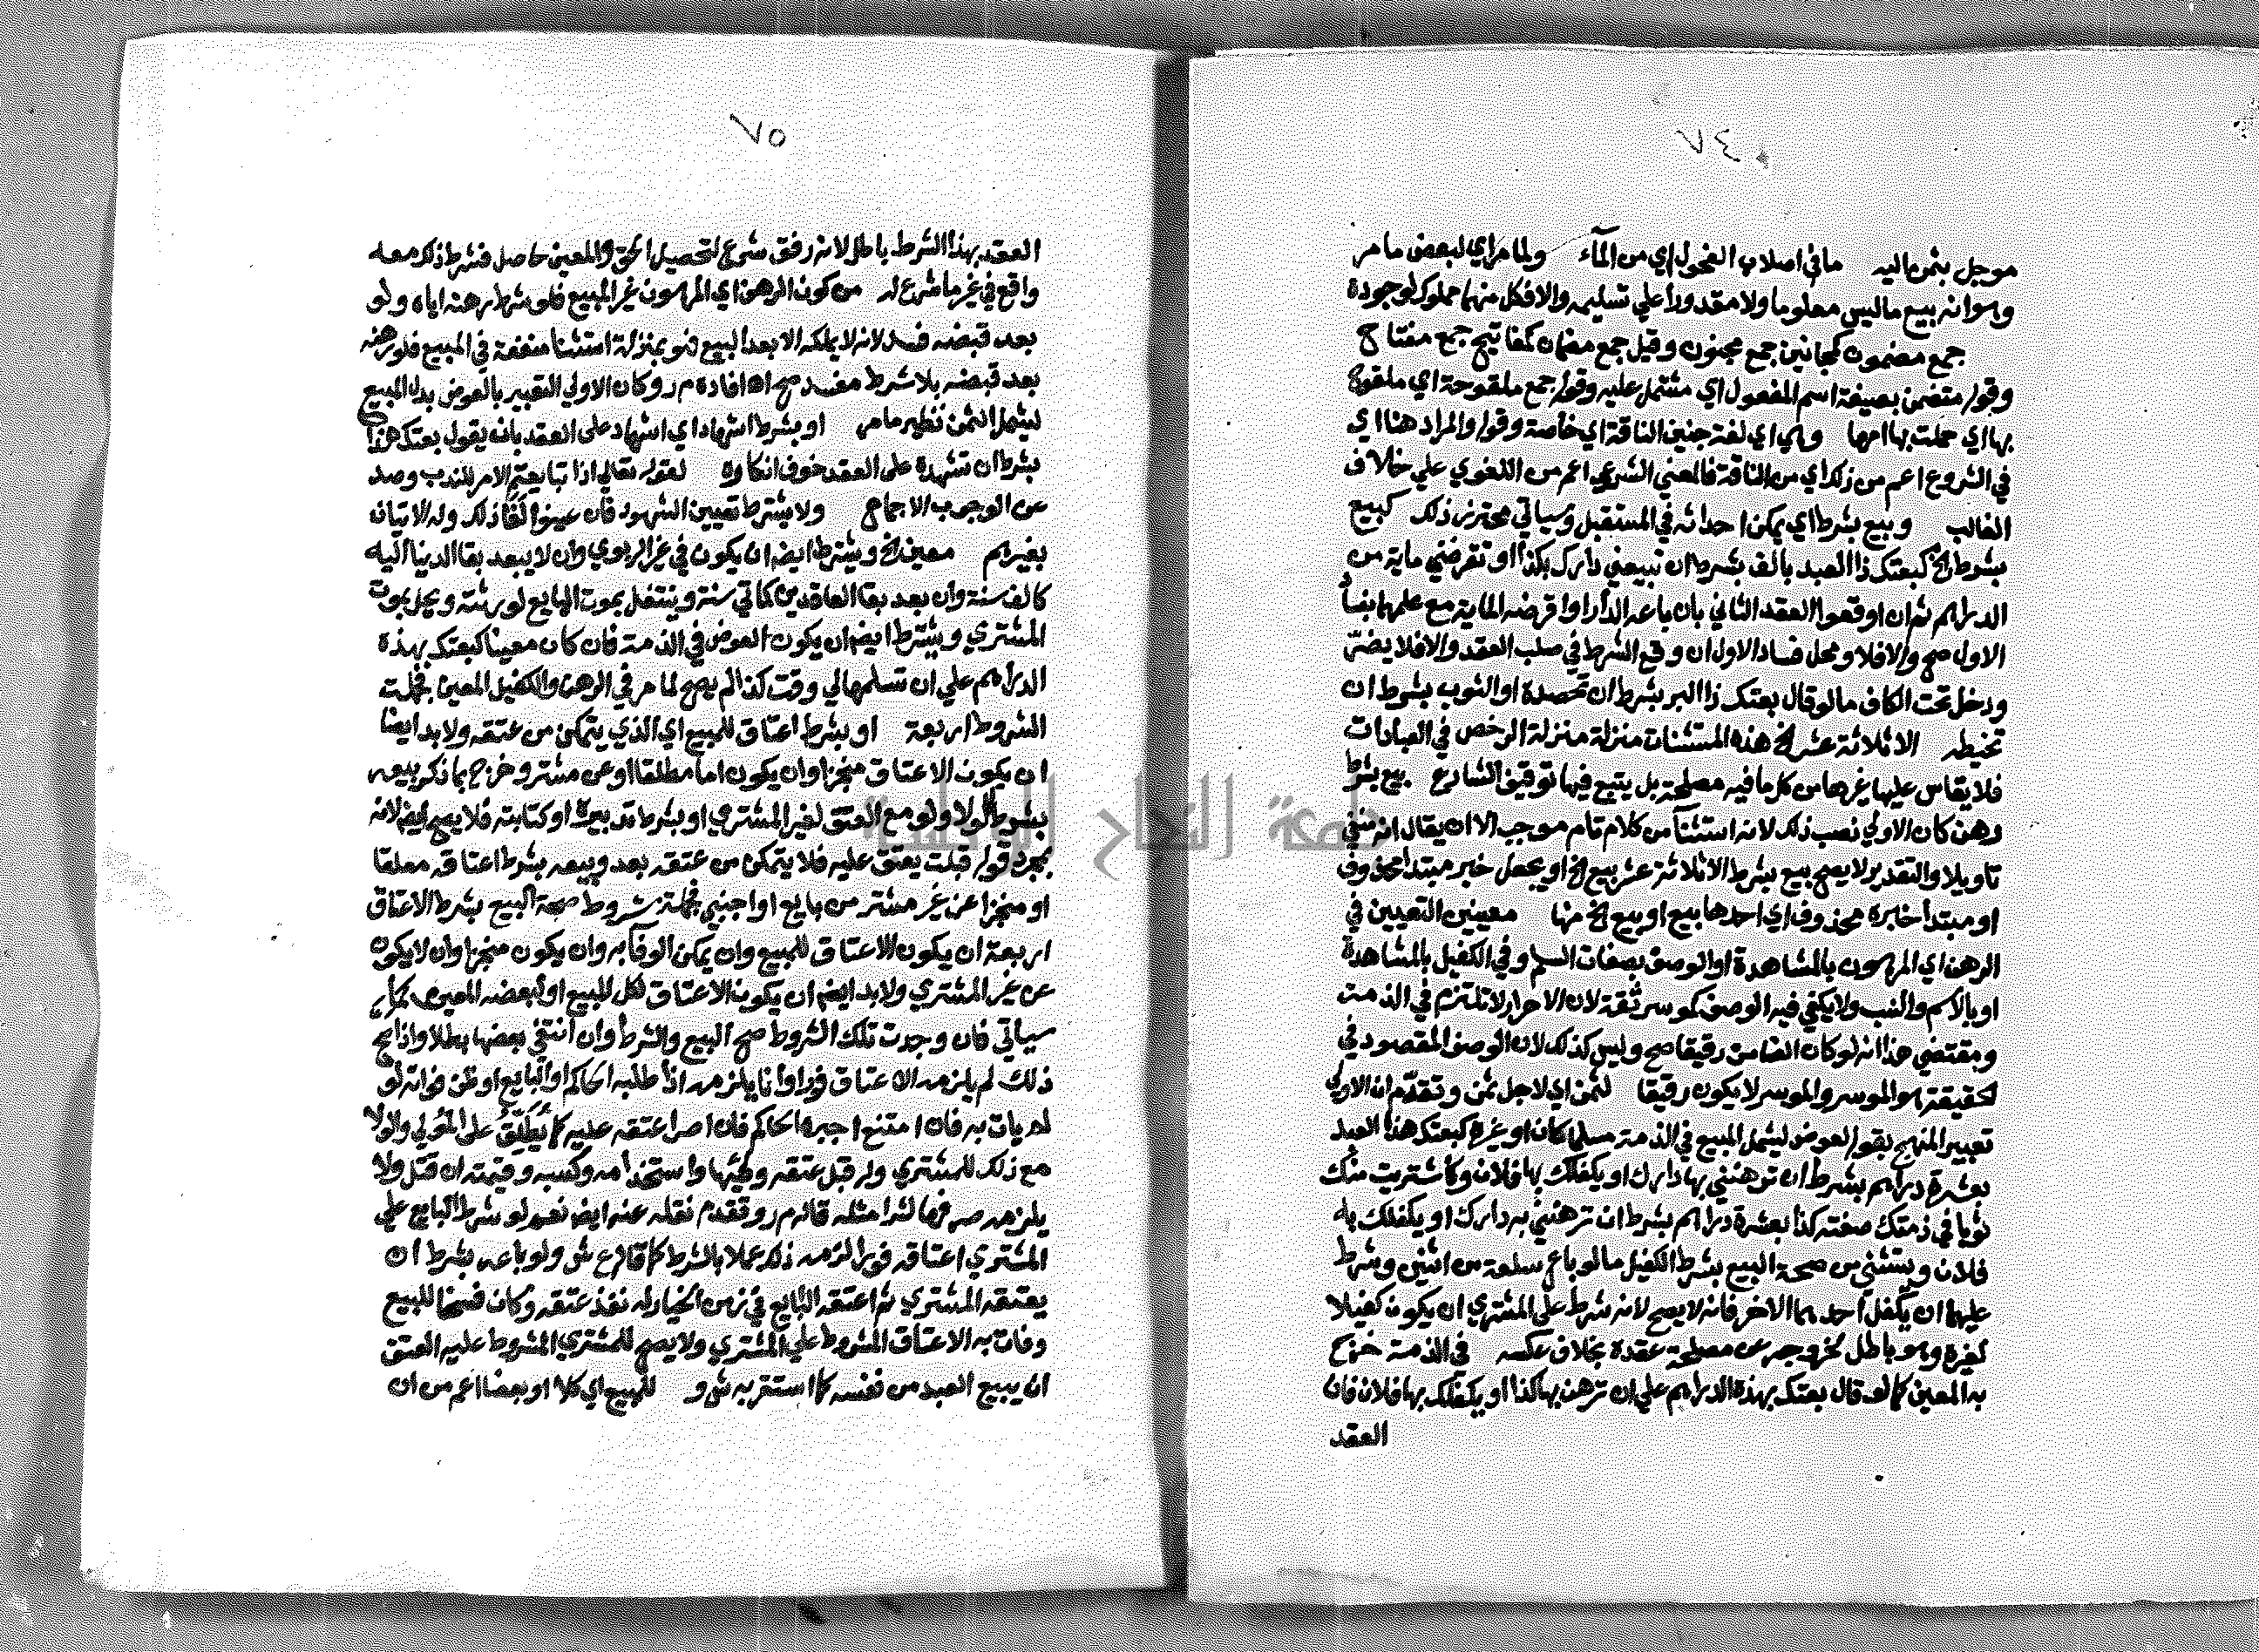 ٧٤
موجل بثمن اليه ما في اصلاب الفحول اي من المآء ولما مر اي لبعض ما مر
وهو انه بيع ما ليس معلوما ولا مقدورا علي تسليمه والافكل منهما مملوك لوجوده
جمع مضمون كمجانين جمع مجنون وقيل جمع مضمان كمفاتيح جمع مفتاح
وقوله متضمن بصيغة اسم المفعول اي مشتمل عليه وقوله جمع ملقوحة اي ملقوح
بها اي حملت بها امها وهي اي لغة جنين الناقة اي خاصة وقوله والمراد هنا اي
في الشروع اعم من ذلك اي من الناقة فالمعني الشرعي اعم من اللغوي علي خلاف
الغالب وبيع بشرط اي يمكن احداثه في المستقبل وسياتي محترز ذلك كبيع
بشرط الخ كبعتك ذا العبد بالف بشرط ان تبيعني دارك بكذا او تقرضني ماية من
الدراهم ثم ان اوقعوا العقد الثاني بان باعه الدار او اقرضه الماية مع علمهما بفساد
الاول صح والا فلا ومحل فساد الاول ان وقع الشرط في صلب العقد والا فلا يضرّ
ودخل تحت الكاف ما لو قال بعتك ذا البر بشرط ان تحصده او الثوب بشرط ان
تخيطه الا ثلاثة عشر الخ هذه المستثنات منزلة منزلة الرخص في العبادات
فلا يقاس عليها غيرها من كل ما فيه مصلحة بل يتبع فيها توقيف الشارع بيع بشرط
رهن كان الاولي نصب ذلك لانه استثنآ من كلام تام موجب الا ان يقال انه منفي
تاويلا والتقدير لا يصح بيع بشرط الا ثلاثة عشر بيع الخ او يجعل خبر مبتدا محذوف
او مبتدأ خابره محذوف اي احدها بيع او بيع الخ منها معينين التعيين في
الرهن اي المرهون بالمشاهدة او الوصف بصفات السلم وفي الكفيل بالمشاهدة
او بالاسم والنسب ولا يكفي فيه الوصف كموسر ثقة لان الاحرار لا تلتزم في الذمة
ومقتضي هذا انه لو كان الضامن رقيقا صح وليس كذلك لان الوصف المقصود في
الحقيقة هو الموسر والموسر لا يكون رقيقا لثمن اي لاجل ثمن وتقدّم ان الاولي
تعبير المنهج بقوله لعوض ليشمل المبيع في الذمة مسلما كان او غيره كبعتك هذا العبد
بعشرة دراهم بشرط ان ترهنني بها دارك او يكفلك بها فلان وكاشتريت منك
ثوبا في ذمتك صفته كذا بعشرة دراهم بشرط ان ترهنني به دارك او يكفلك به
فلان ويستثني من صحة البيع بشرط الكفيل ما لو باع سلعة من اثنين وشرط
عليهما ان يكفل احدهما الاخر فانه لا يصح لانه شرط علي المشتري ان يكون كفيلا
لغيره وهو باطل لخروجه عن مصلحة عقده بخلاف عكسه في الذمة خرج
به المعين كما لو قال بعتك بهذه الدراهم علي ان ترهن بها كذا او يكفلك بها فلان فان
العقد
٧٥
العقد بهذا الشرط باطل لانه رفق شرع لتحصيل الحق والمعين حاصل فشرط ذلك معه
واقع في غير ما شرع له من كون الرهن اي المرهون غير المبيع فلو شرط رهنه اياه ولو
بعد قبضه فسد لانه لا يملكه الا بعد البيع فهو بمنزلة استثنا منفعة في المبيع فلو رهنه
بعد قبضه بلا شرط مفسد صح اه افاده م ر وكان الاولي التعبير بالعوض بدل المبيع
ليشمل الثمن نظير ما مر او بشرط اشهاد اي اشهاد علي العقد بان يقول بعتك هذا
بشرط ان تشهده علي العقد خوف انكاره لقوله تعالي اذا تبايعتم الامر للندب وصد
عن الوجوب الاجماع ولا يشترط تعيين الشهود فان عينوا لَغَا ذلك وله الاتيان
بغيرهم معين الخ ويشترط ايضا ان يكون في غير الربوي وان لا يبعد بقا الدنيا اليه
كالف سنة وان بعد بقا العاقدين كماتي سنة وينتقل بموت البايع لورثته ويحل بموت
المشتري ويشترط ايضا ان يكون العوض في الذمة فان كان معينا كبعتك بهذه
الدراهم علي ان تسلمها لي وقت كذا لم يصح لما مر في الرهن والكفيل المعين فجملت
الشروط اربعة او بشرط اعتاق للمبيع اي الذي يتمكن من عتقه ولا بد ايضا
ان يكون الاعتاق منجزا وان يكون اما مطلقا او عن مشتر وخرج بما ذكر بيعه
بشرط الولا ولو مع العتق لغير المشتري او بشرط تدبيره او كتابته فلا يصح ايضا لانه
بمجرد قوله قبلت يعتق عليه فلا يتمكن من عتقه بعد وبيعه بشرط اعتاقه معلقا
او منجزا عن غير مشتر من بايع او اجنبي فجملة شروط صحة البيع بشرط الاعتاق
اربعة ان يكون الاعتاق للمبيع وان يمكن الوفآ به وان يكون منجزا وان لا يكون
عن غير المشتري ولا بد ايضا ان يكون الاعتاق لكل المبيع او لبعضه المعين كما
سياتي فان وجدت تلك الشروط صح البيع والشرط وان انتفي بعضها بطلا واذا صح
ذلك لم يلزمه الاعتاق فورا وانما يلزمه اذا طلبه الحاكم او البايع او ظن فواته لو
لم يات به فان امتنع اجبره الحاكم فان اصر اعتقه عليه كما يُطَلِّقُ علي المُولي والولا
مع ذلك للمشتري وله قبل عتقه وطئها واستخدامه وكسبه وقيمته ان قتل ولا
يلزمه صرفها لشرا مثله قاله م ر وتقدم نقله عنه ايضا نعم لو شرط البايع علي
المشتري اعتاقه فورا لزمه ذلك عملا بالشرط كما قاله ع ش ولو باعه بشرط ان
يعتقه المشتري ثم اعتقه البايع في زمن الخيار له نفذ عتقه وكان فسخا للبيع
وفات به الاعتاق المشروط علي المشتري ولا يصح للمشتري المشروط عليه العتق
ان يبيع العبد من نفسه كما استقر به ش و للمبيع اي كلا او بعضا اعم من ان